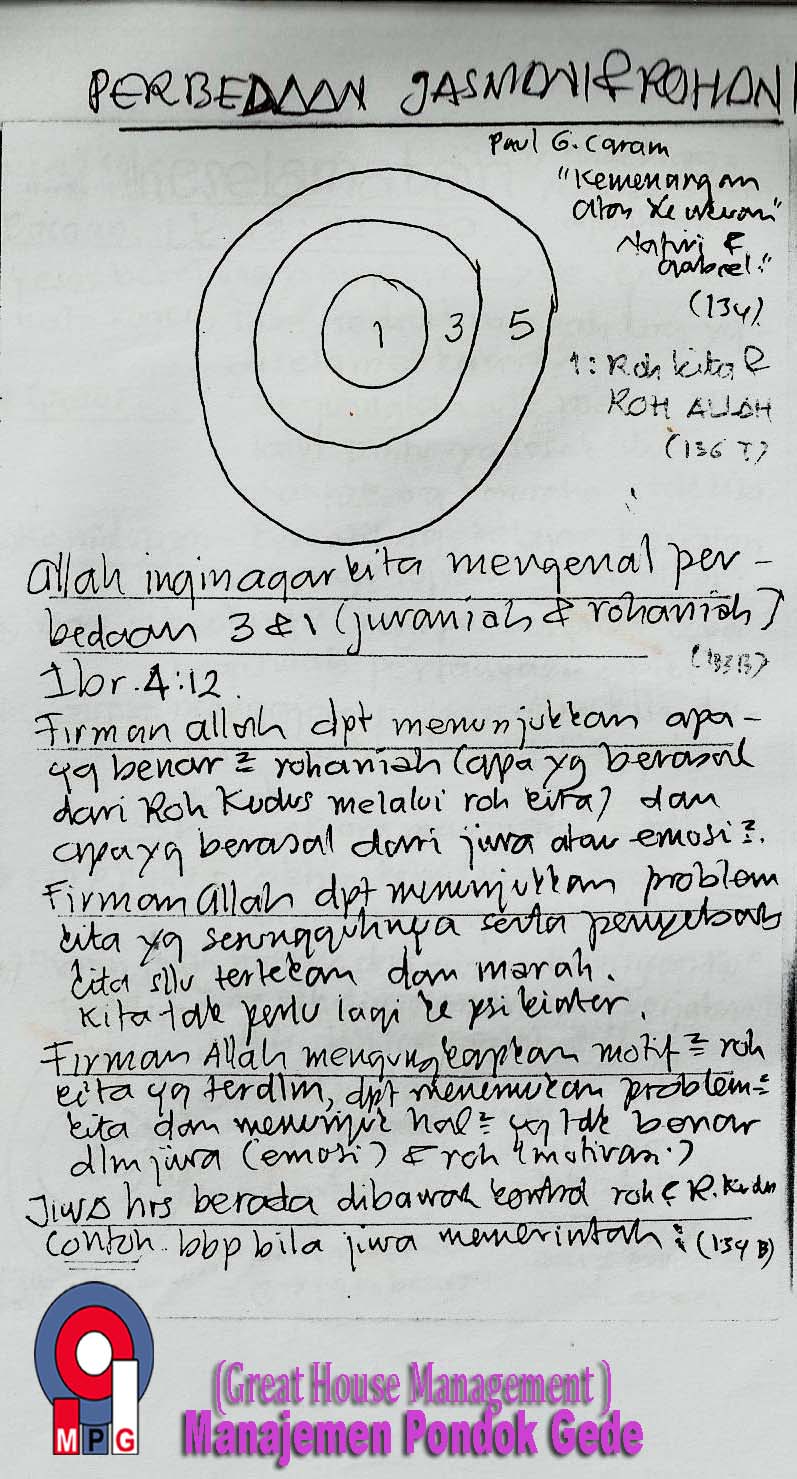 PERBEDAAN JASMANI & ROHANI
Paul G. Caram
"Kemenangan
atas
&
(134)
1 3 5
1: Roh kita &
ROH ALLAH
(136 T)
Allah ingin agar kita mengenal per-
bedaan 3 & 1 (juwaniah & rohaniah)
Ibr. 4:12.
Firman allah dpt menunjukkan apa-
yg benar² rohaniah (apa yg berasal
dari Roh Kudus melalui roh kita) dan
apa yg berasal dari jiwa atau emosi².
Firman Allah dpt menunjukkan problem
kita yg sesungguhnya serta penyebab
kita sllu tertekan dan marah.
Kita tak perlu lagi ke psikiater.
Firman Allah mengungkapkan motif² roh
kita yg terdlm, dpt menemukan problem²
kita dan menunjuk hal² yg tak benar
dlm jiwa (emosi) & roh (motivasi)
Jiwa hrs berada dibawah kontrol roh & R. Kudus
Contoh bbp bila jiwa memerintah: (134 B)
MPG
(Great House Management )
Manajemen Pondok Gede